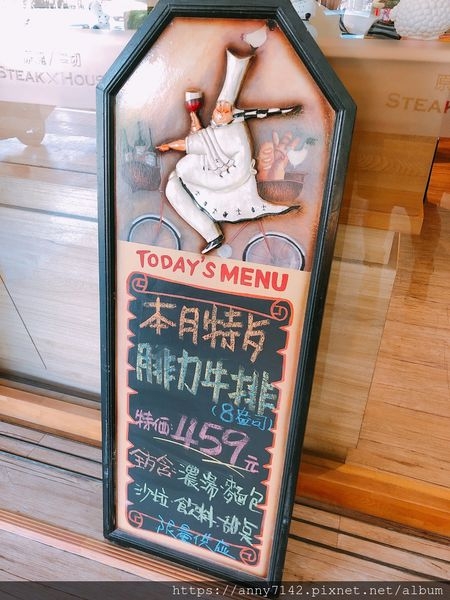 原 / 牛
STEAK X HOUS
原
STEAK
TODAY'S MENU
本月特片
腓力牛排
(8盎司)
特価:459元
全餐含:濃湯·麵包
沙拉·飲料·甜点
限量供应
https://anny7142.pixnet.net/album